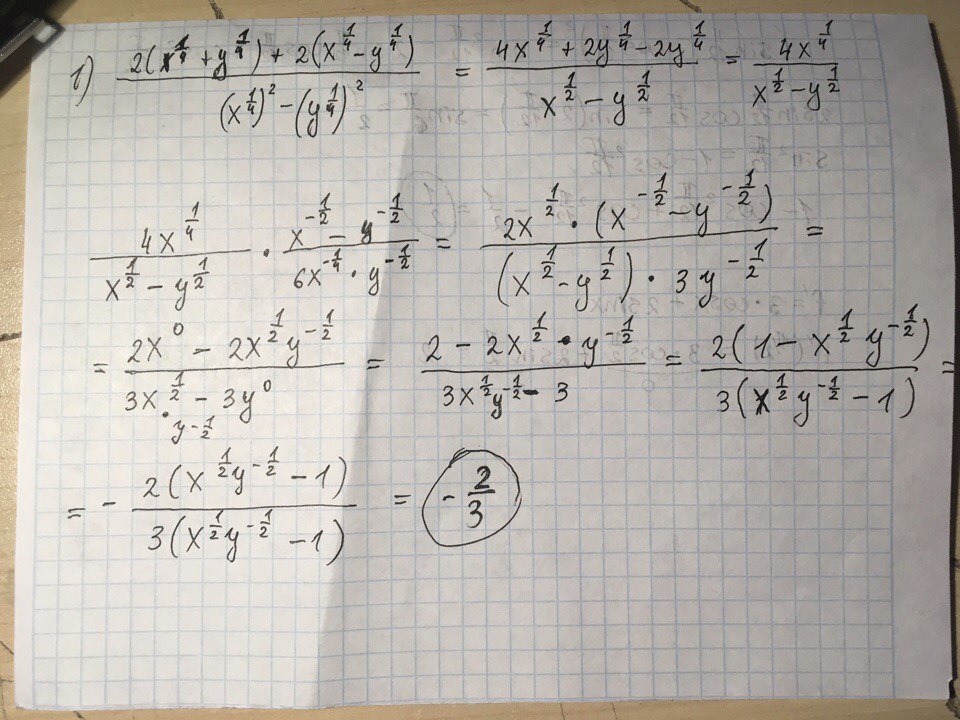 1) \frac{2(x^{\frac{1}{4}}+y^{\frac{1}{4}})+2(x^{\frac{1}{4}}-y^{\frac{1}{4}})}{(x^{\frac{1}{4}})^2-(y^{\frac{1}{4}})^2} = \frac{4x^{\frac{1}{4}}+2y^{\frac{1}{4}}-2y^{\frac{1}{4}}}{x^{\frac{1}{2}}-y^{\frac{1}{2}}} = \frac{4x^{\frac{1}{4}}}{x^{\frac{1}{2}}-y^{\frac{1}{2}}}
\frac{4x^{\frac{1}{4}}}{x^{\frac{1}{2}}-y^{\frac{1}{2}}} \cdot \frac{x^{-\frac{1}{2}}-y^{-\frac{1}{2}}}{6x^{-\frac{1}{4}} \cdot y^{-\frac{1}{2}}} = \frac{2x^{\frac{1}{2}} \cdot (x^{-\frac{1}{2}}-y^{-\frac{1}{2}})}{(x^{\frac{1}{2}}-y^{\frac{1}{2}}) \cdot 3y^{-\frac{1}{2}}} =
= \frac{2x^0-2x^{\frac{1}{2}}y^{-\frac{1}{2}}}{3x^{\frac{1}{2}} \cdot y^{-\frac{1}{2}}-3y^0} = \frac{2-2x^{\frac{1}{2}} \cdot y^{-\frac{1}{2}}}{3x^{\frac{1}{2}}y^{-\frac{1}{2}}-3} = \frac{2(1-x^{\frac{1}{2}}y^{-\frac{1}{2}})}{3(x^{\frac{1}{2}}y^{-\frac{1}{2}}-1)} =
= -\frac{2(x^{\frac{1}{2}}y^{-\frac{1}{2}}-1)}{3(x^{\frac{1}{2}}y^{-\frac{1}{2}}-1)} = -\frac{2}{3}